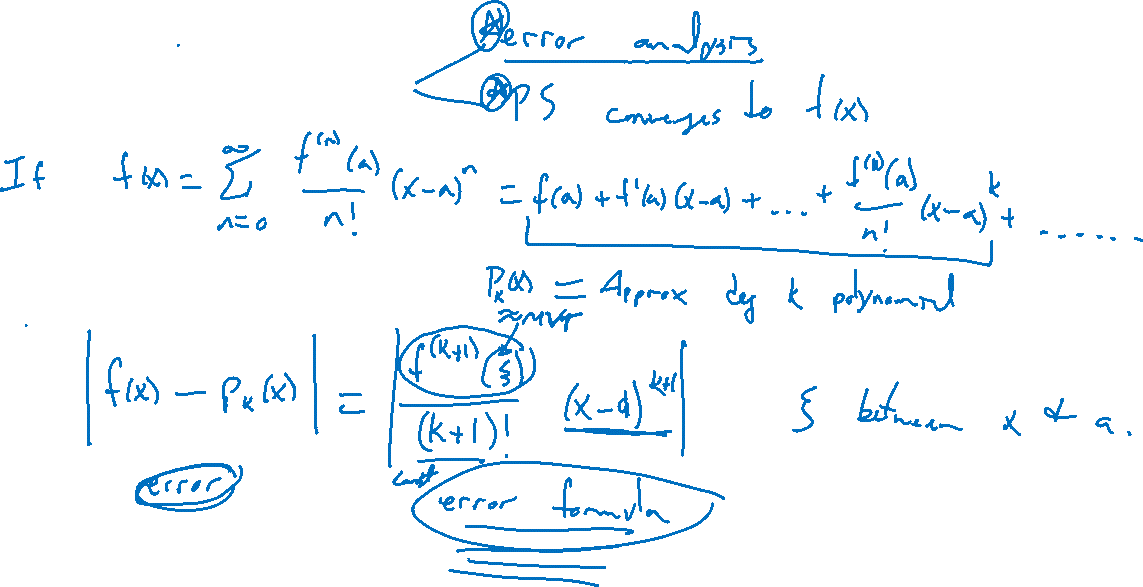 error analysis
PS converges to f(x)
If f(x) = ∑_{n=0}^{∞} f^{(n)}(a)/n! (x-a)^n = f(a) + f'(a)(x-a) + .... + f^{(k)}(a)/n! (x-a)^k + ......
P_k(x) = Approx deg k polynomial
≈MVT
|f(x) - P_k(x)| = |f^{(k+1)}(ξ)/(k+1)! (x-a)^{k+1}| ξ between x & a.
const
error error formula